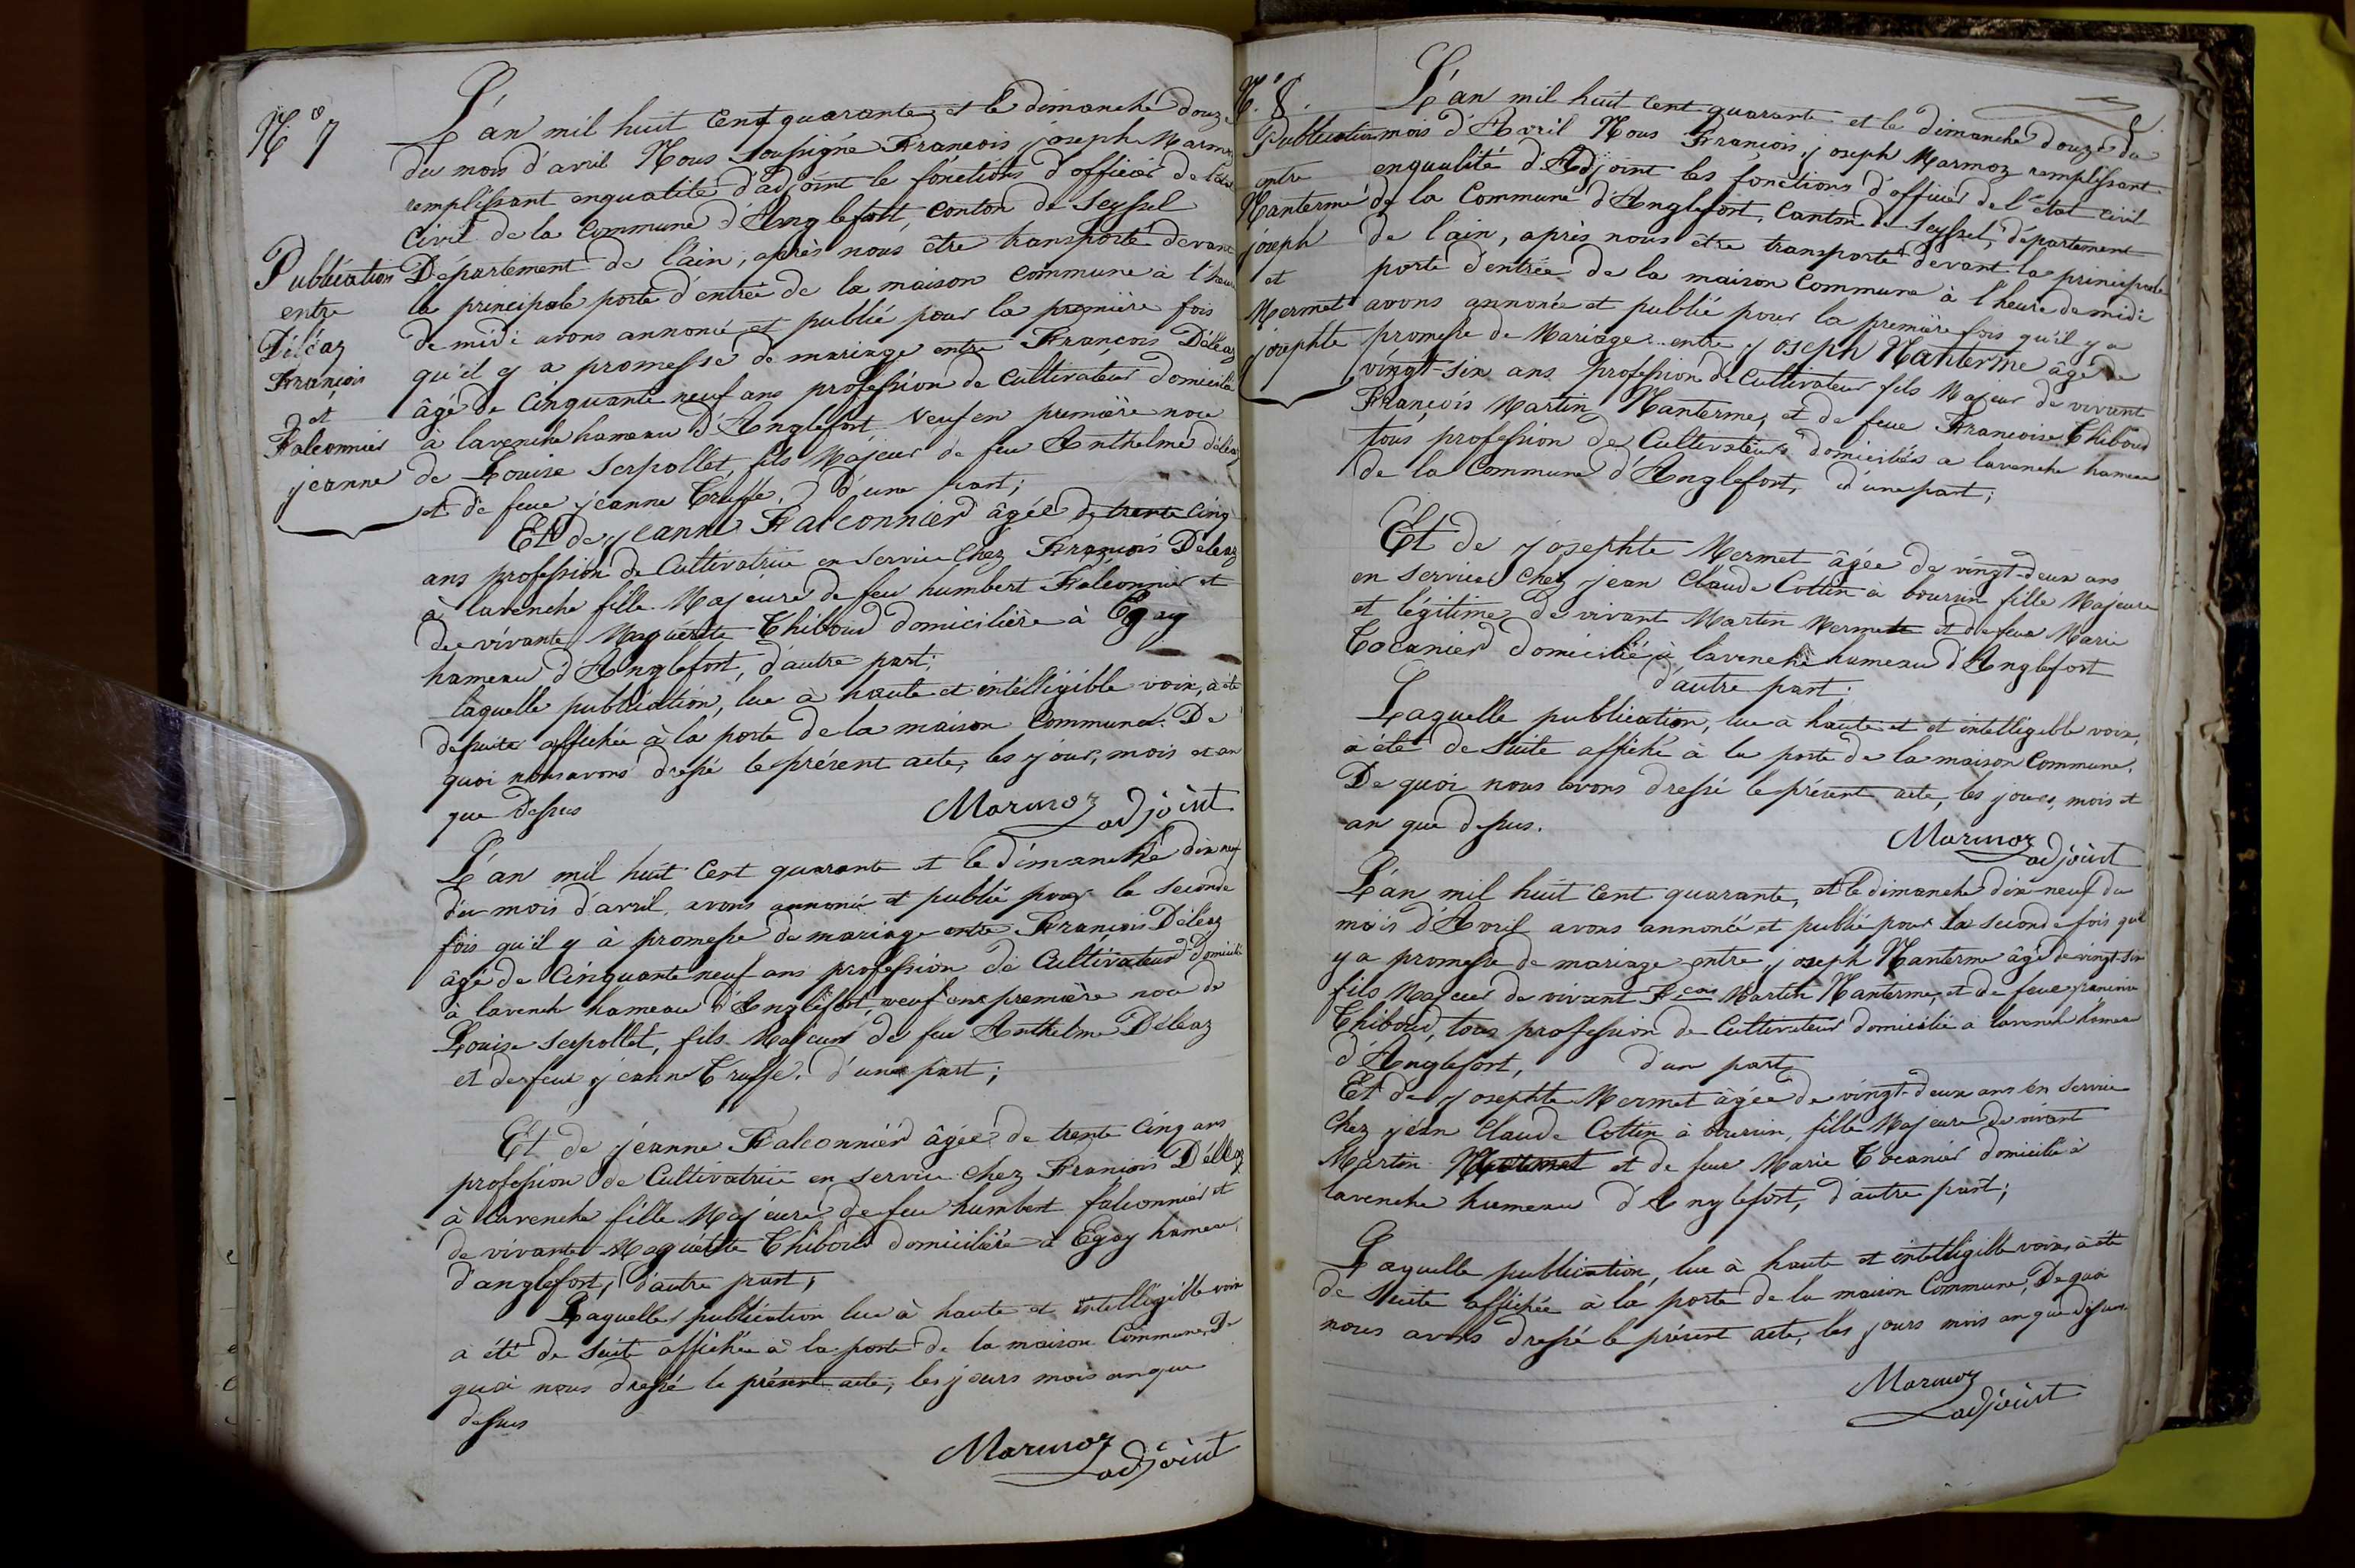 N° 7
Publication
entre
Déléaz
François
et
Falconnier
jeanne
L'an mil huit Cent quarante, et le dimanche douze
du mois d'avril Nous soussigné François joseph Marmoz
remplissant enqualité d'adjoint le fonctions d'officier de l'état
Civil de la Commune d'Anglefort, conton de Seyssel
Département de l'ain, après nous être transporté devant
la principale porte d'entrée de la maison Commune à l'heure
de midi avons annoncé et publié pour la première fois
qu'il y a promesse de mariage entre François Déléaz
âgé de Cinquante neuf ans profession de Cultivateur domicilié
à lavenche hameau d'Anglefort, Veuf en première noce
de Louise Serpollet, fils Majeur de feu Anthelme déléaz
et de feue jeanne Truffé, d'une part;
Et de jeanne Falconnier âgée de trente Cinq
ans profession de Cultivatrice en service Chez François Déléaz
à lavenche fille Majeure de feu humbert Falconnier et
de vivante Maguérite Thiboud domicilière à Egay
hameau d'Anglefort, d'autre part;
laquelle publication, lue a haute et intélligible voix, à été
desuite affichée à la porte de la maison Commune. De
quoi nous avons dressé le présent acte, les jour, mois et an
que dessus
Marmoz adjoint
L'an mil huit Cent quarante et le dimanche dix neuf
du mois d'avril, avons annoncé et publié pour la seconde
fois qu'il y à promesse de mariage entre François Déléaz
âgé de Cinquante neuf ans profession de Cultivateur domicilié
à lavench hameau d'Anglefort, veuf en première noce de
Louise Serpollet, fils Majeur de feu Anthelme Déléaz
et de feue jeanne Truffé. d'une part;
Et de jeanne Falconniér âgée de trente Cinq ans
profession de Cultivatrice en service chez François Déléaz
à lavenche fille Majeure de feu humbert falconnier et
de vivante Maguérite Thiboud domicilière à Egay hameau
d'anglefort, d'autre part;
Laquelle publication lue à haute et intelligible voix
a été de suite affichée à la porte de la maison Commune, De
quoi nous dressé le présent acte, les jours mois an que
dessus
Marmoz adjoint
N° 8.
Publication
entre
Nanterme
joseph
et
Mermet
josephte
L'an mil huit Cent quarante et le dimanche douze du
mois d'Avril Nous François, joseph Marmoz remplissant
enqualité d'Adjoint les fonctions d'officier de l'état Civil
de la Commune d'Anglefort, Canton de Seyssel, département
de l'ain, après nous être transporté devant la principale
porte d'entrée de la maison Commune à l'heure de midi
avons annoncé et publié pour la première fois qu'il y a
promesse de Mariage entre joseph Nanterme âgé de
vingt-six ans profession de Cultivateur fils Majeur de vivant
François Martin Nanterme, et de feue Francoise Thiboud
tous profession de Cultivateurs domiciliés a lavenche hameau
de la Commune d'Anglefort, d'une part;
Et de josephte Mermet âgée de vingt-deux ans
en service chez jean Claude Cottin à boursin fille Majeure
et légitime de vivant Martin Mermete et de feue Marie
Cocanier domicilié à lavenche hameau d'Anglefort
d'autre part;
Laquelle publication, lue a haute et et intelligible voix,
à été de suite affiché à la porte de la maison Commune.
De quoi nous avons dressé le présent acte, les jours, mois et
an que dessus.
Marmoz adjoint
L'an mil huit Cent quarante, et le dimanche dix-neuf du
mois d'Avril avons annoncé et publié pour la seconde fois quil
y a promesse de mariage entre joseph Nanterme âgé de vingt-six
fils Majeur de vivant Fcois Martin Nanterme, et de feue
Thiboud, tous profession de Cultivateur domicilié à lavenche hameau
d'Anglefort, d'un part,
Et de josephte Mermet âgée de vingt-deux ans en service
chez jéan Claude Cottin à boursin, fille Majeure de vivant
Martin Mermet et de feue Marie Cocanier domicilié à
lavenche hameau d'Anglefort, d'autre part;
Laquelle publication, lue à haute et intelligible voix, à été
de Suite affichée à la porte de la maison Commune, De quoi
nous avons dressé le présent acte, les jours mois an que dessus.
Marmoz
adjoint